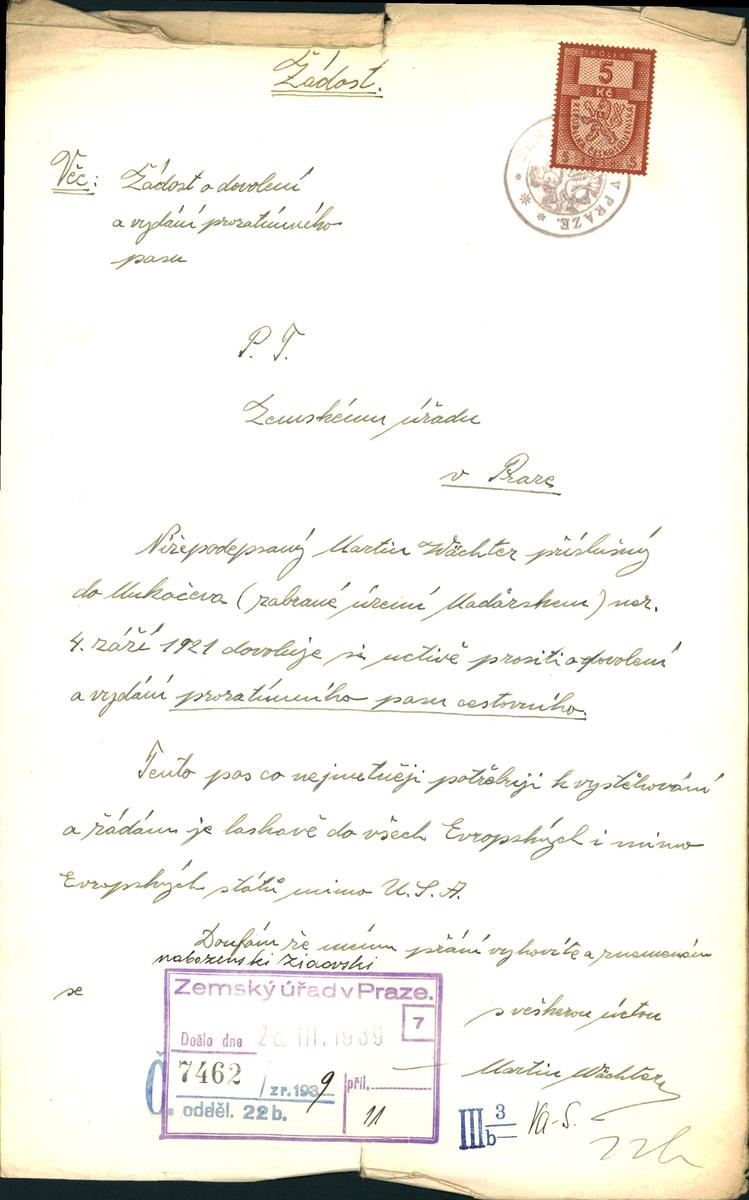 Žádost.
KOLEK
5
Kč
V PRAZE.
Věc: Žádost o dovolení
a vydání prozatímného
pasu
P. T.
Zemskému úřadu
v Praze
Nížepodepsaný Martin Wächter příslušný
do Mukačeva (zabrané území Maďarskem) nar.
4. září 1921 dovoluje si uctivě prositi o dovolení
a vydání prozatímního pasu cestovního.
Tento pas co nejnutněji potřebuji k vystěhování
a žádám je laskavě do všech Evropských i mimo
Evropských států mimo U.S.A.
Doufám že mému přání vyhovíte a znamenám
naboženski židovski
se
s veškerou úctou
Martin Wächter
Zemský úřad v Praze.
7
Došlo dne III. 1939
Č. 7462 / z r. 1939 příl.
odděl. 22b. 11
III 3 Va-S.
b